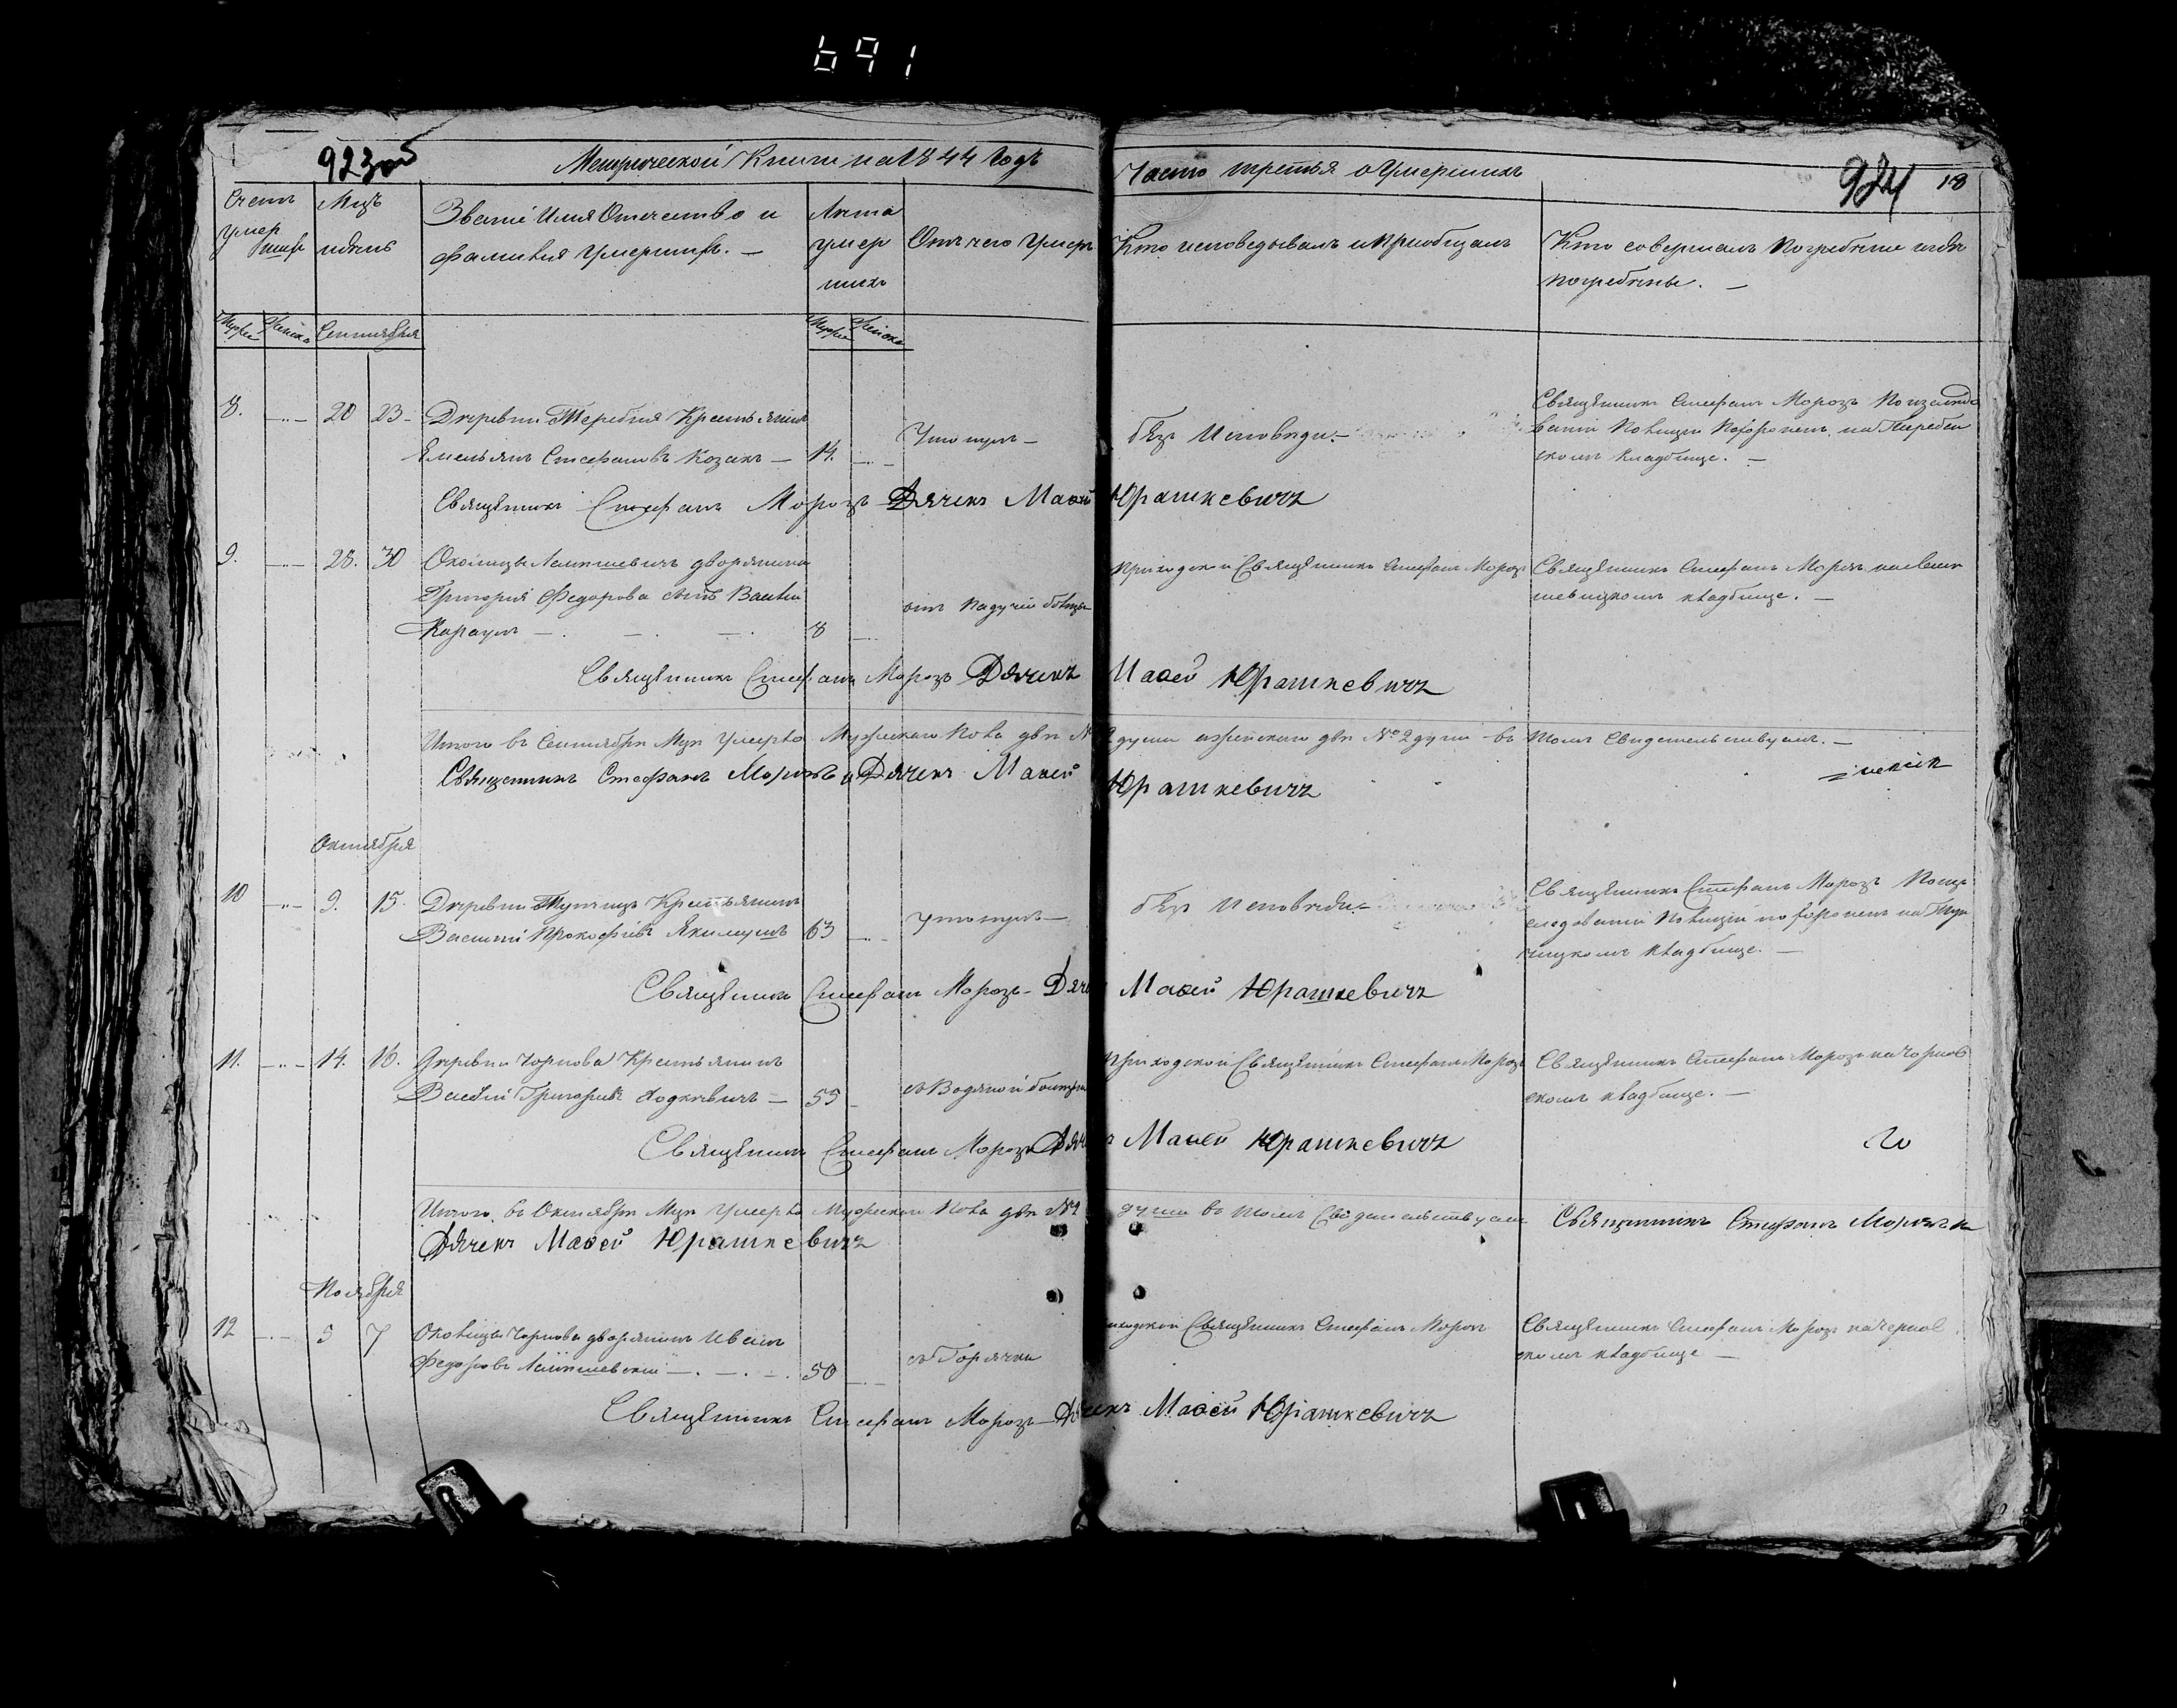 691
923 об
Метрической Книги на 1844 Годъ
Часть третья о Умершихъ
924
18
Счетъ умер шихъ
Мцъ и день
Званіе Имя Отчество и фамилія Умершихъ. —
Лета умер шихъ
Отъ чего Умеръ
Кто исповедывалъ и пріобщалъ
Кто совершалъ Погребеніе и где погребены. —
Муже Женска Сентября Муже Женска
8. 20 23 Деревни Теребня Крестьянинъ
Емельянъ Стефановъ Козакъ — 14.
Утонулъ —
безъ Исповеди. —
Священникъ Стефанъ Морозъ По изследо
ваніи Полиціи Похороненъ на Теребен
скомъ Кладбище. —
Священникъ Стефанъ Морозъ Дячекъ Масей Юрашкевичъ
9. 28. 30 Околицы дворянина
Григорія Федорова сынъ
Караум — 8
отъ падучей болезни
Приходской Священникъ Стефанъ Морозъ
Священникъ Стефанъ Морозъ на
кладбище. —
Священникъ Стефанъ Морозъ Дячекъ Масей Юрашкевичъ
Итого въ Сентябре Мцe Умерло Мужеска Пола две № 2 души а женскаго две № 2 души въ томъ Свидетельствуемъ. —
Священникъ Стефанъ Морозъ и Дячекъ Масей Юрашкевичъ
Октября
10 9. 15. Деревни Тупчицъ Крестьянинъ
Василій Прокофіевъ Якимушъ 63
Утонулъ —
безъ Исповеди. —
Священникъ Стефанъ Морозъ По изс
ледованіи Полиціи похороненъ на Туп
чицкомъ кладбище. —
Священникъ Стефанъ Морозъ Дяче Масей Юрашкевичъ
11. 14. 16. Деревни Чернова Крестьянинъ
Василій Григорьевъ Ходкевичъ — 55
съ Водяной болезни
Приходской Священникъ Стефанъ Морозъ
Священникъ Стефанъ Морозъ на Чернов
скомъ кладбище. —
Священникъ Стефанъ Морозъ Дяче Масей Юрашкевичъ
Итого въ Октябре Мце Умерло Мужеска Пола две № 2 души въ томъ Свидетельствуемъ Священникъ Стефанъ Морозъ и
Дячекъ Масей Юрашкевичъ
Ноября
12 5 7 Околицы Чернова дворянинъ Иванъ
Федоровъ — 50
съ Горячки
Священникъ Стефанъ Морозъ
Священникъ Стефанъ Морозъ на Чернов
скомъ кладбище —
Священникъ Стефанъ Морозъ Дячекъ Масей Юрашкевичъ